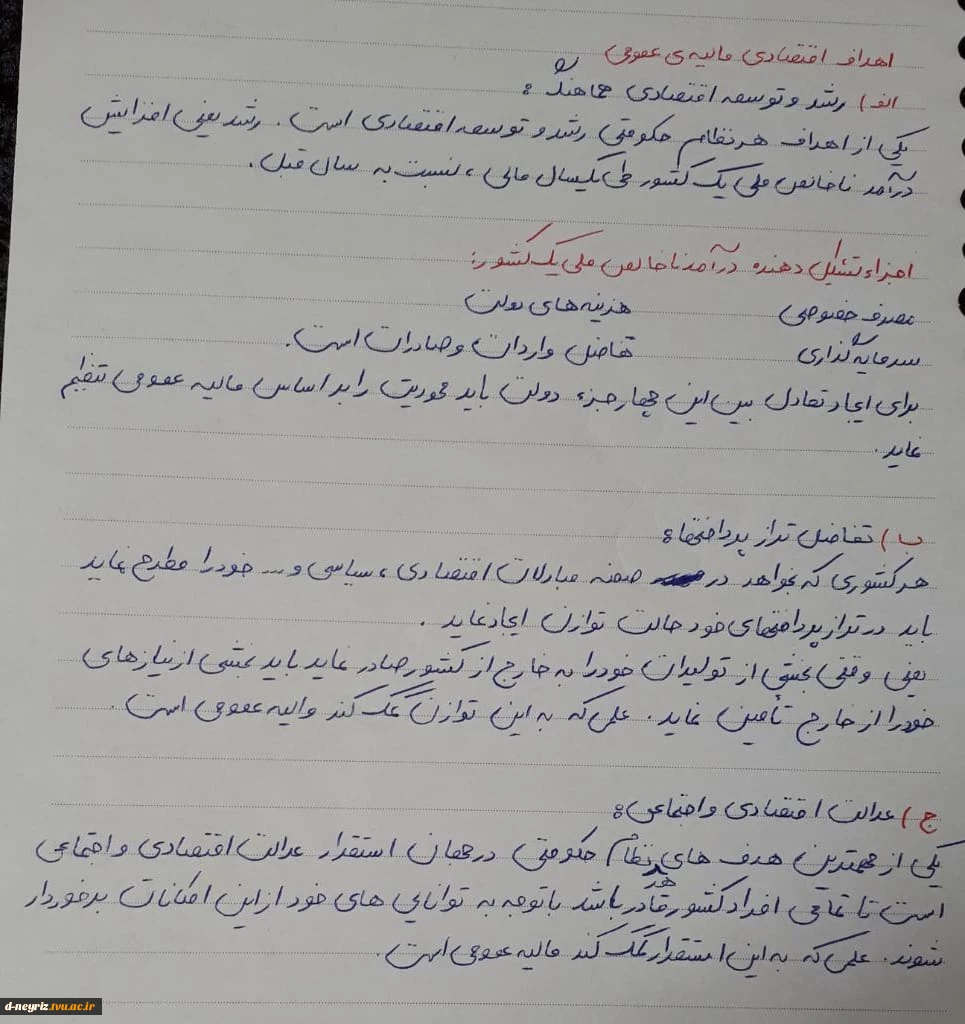 اهداف اقتصادی مالیه ی عمومی
الف) رشد و توسعه اقتصادی هماهنگ :
یکی از اهداف هر نظام حکومتی رشد و توسعه اقتصادی است. رشد یعنی افزایش
درآمد ناخالص ملی یک کشور طی یکسال مالی ، نسبت به سال قبل.
اجزاء تشکیل دهنده درآمد ناخالص ملی یک کشور:
مصرف خصوصی هزینه های دولت
سرمایه گذاری تفاضل واردات و صادرات است.
برای ایجاد تعادل بین این چهار جزء دولت باید محدودیت را بر اساس مالیه عمومی تنظیم
نماید.
ب) تفاضل تراز پرداختها:
هر کشوری که بخواهد در صحنه مبادلات اقتصادی ، سیاسی و ... خود را مطرح نماید
باید در تراز پرداختهای خود حالت توازن ایجاد نماید .
یعنی وقتی بخشی از تولیدات خود را به خارج از کشور صادر نماید باید بخشی از نیازهای
خود را از خارج تأمین نماید. علمی که به این توازن کمک کند مالیه عمومی است.
ج) عدالت اقتصادی و اجتماعی:
یکی از مهمترین هدف های هر نظام حکومتی در جهان استقرار عدالت اقتصادی و اجتماعی
است تا تمامی افراد کشور قادر باشد با توجه به توانایی های خود از این امکانات برخوردار
شوند. علمی که به این استقرار کمک کند مالیه عمومی است.
d-neyriz.tvu.ac.ir